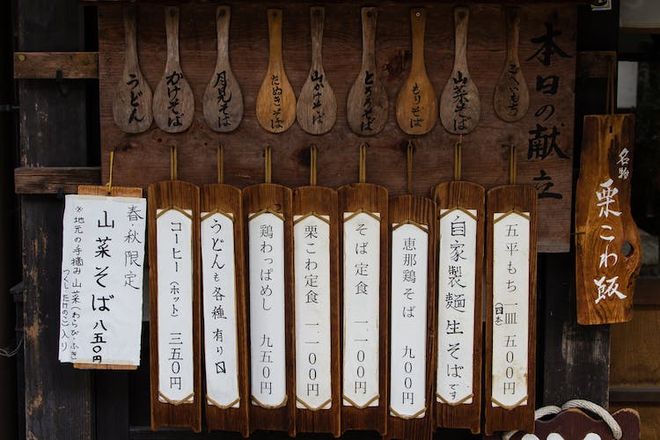 名物
栗こわ飯
本日の献立
ごへいもち
山菜そば
もりそば
とろろそば
山かけそば
たぬきそば
月見そば
かけそば
うどん
五平もち 一皿 五〇〇円
自家製麺 生そばです
恵那鶏そば 九〇〇円
そば定食 一一〇〇円
栗こわ定食 一一〇〇円
鶏わっぱめし 九五〇円
うどんも各種有り〼
コーヒー(ホット) 三五〇円
春・秋限定
山菜そば 八五〇円
※地元の手摘み山菜(わらび・ふき
つくし、たけのこ)入り